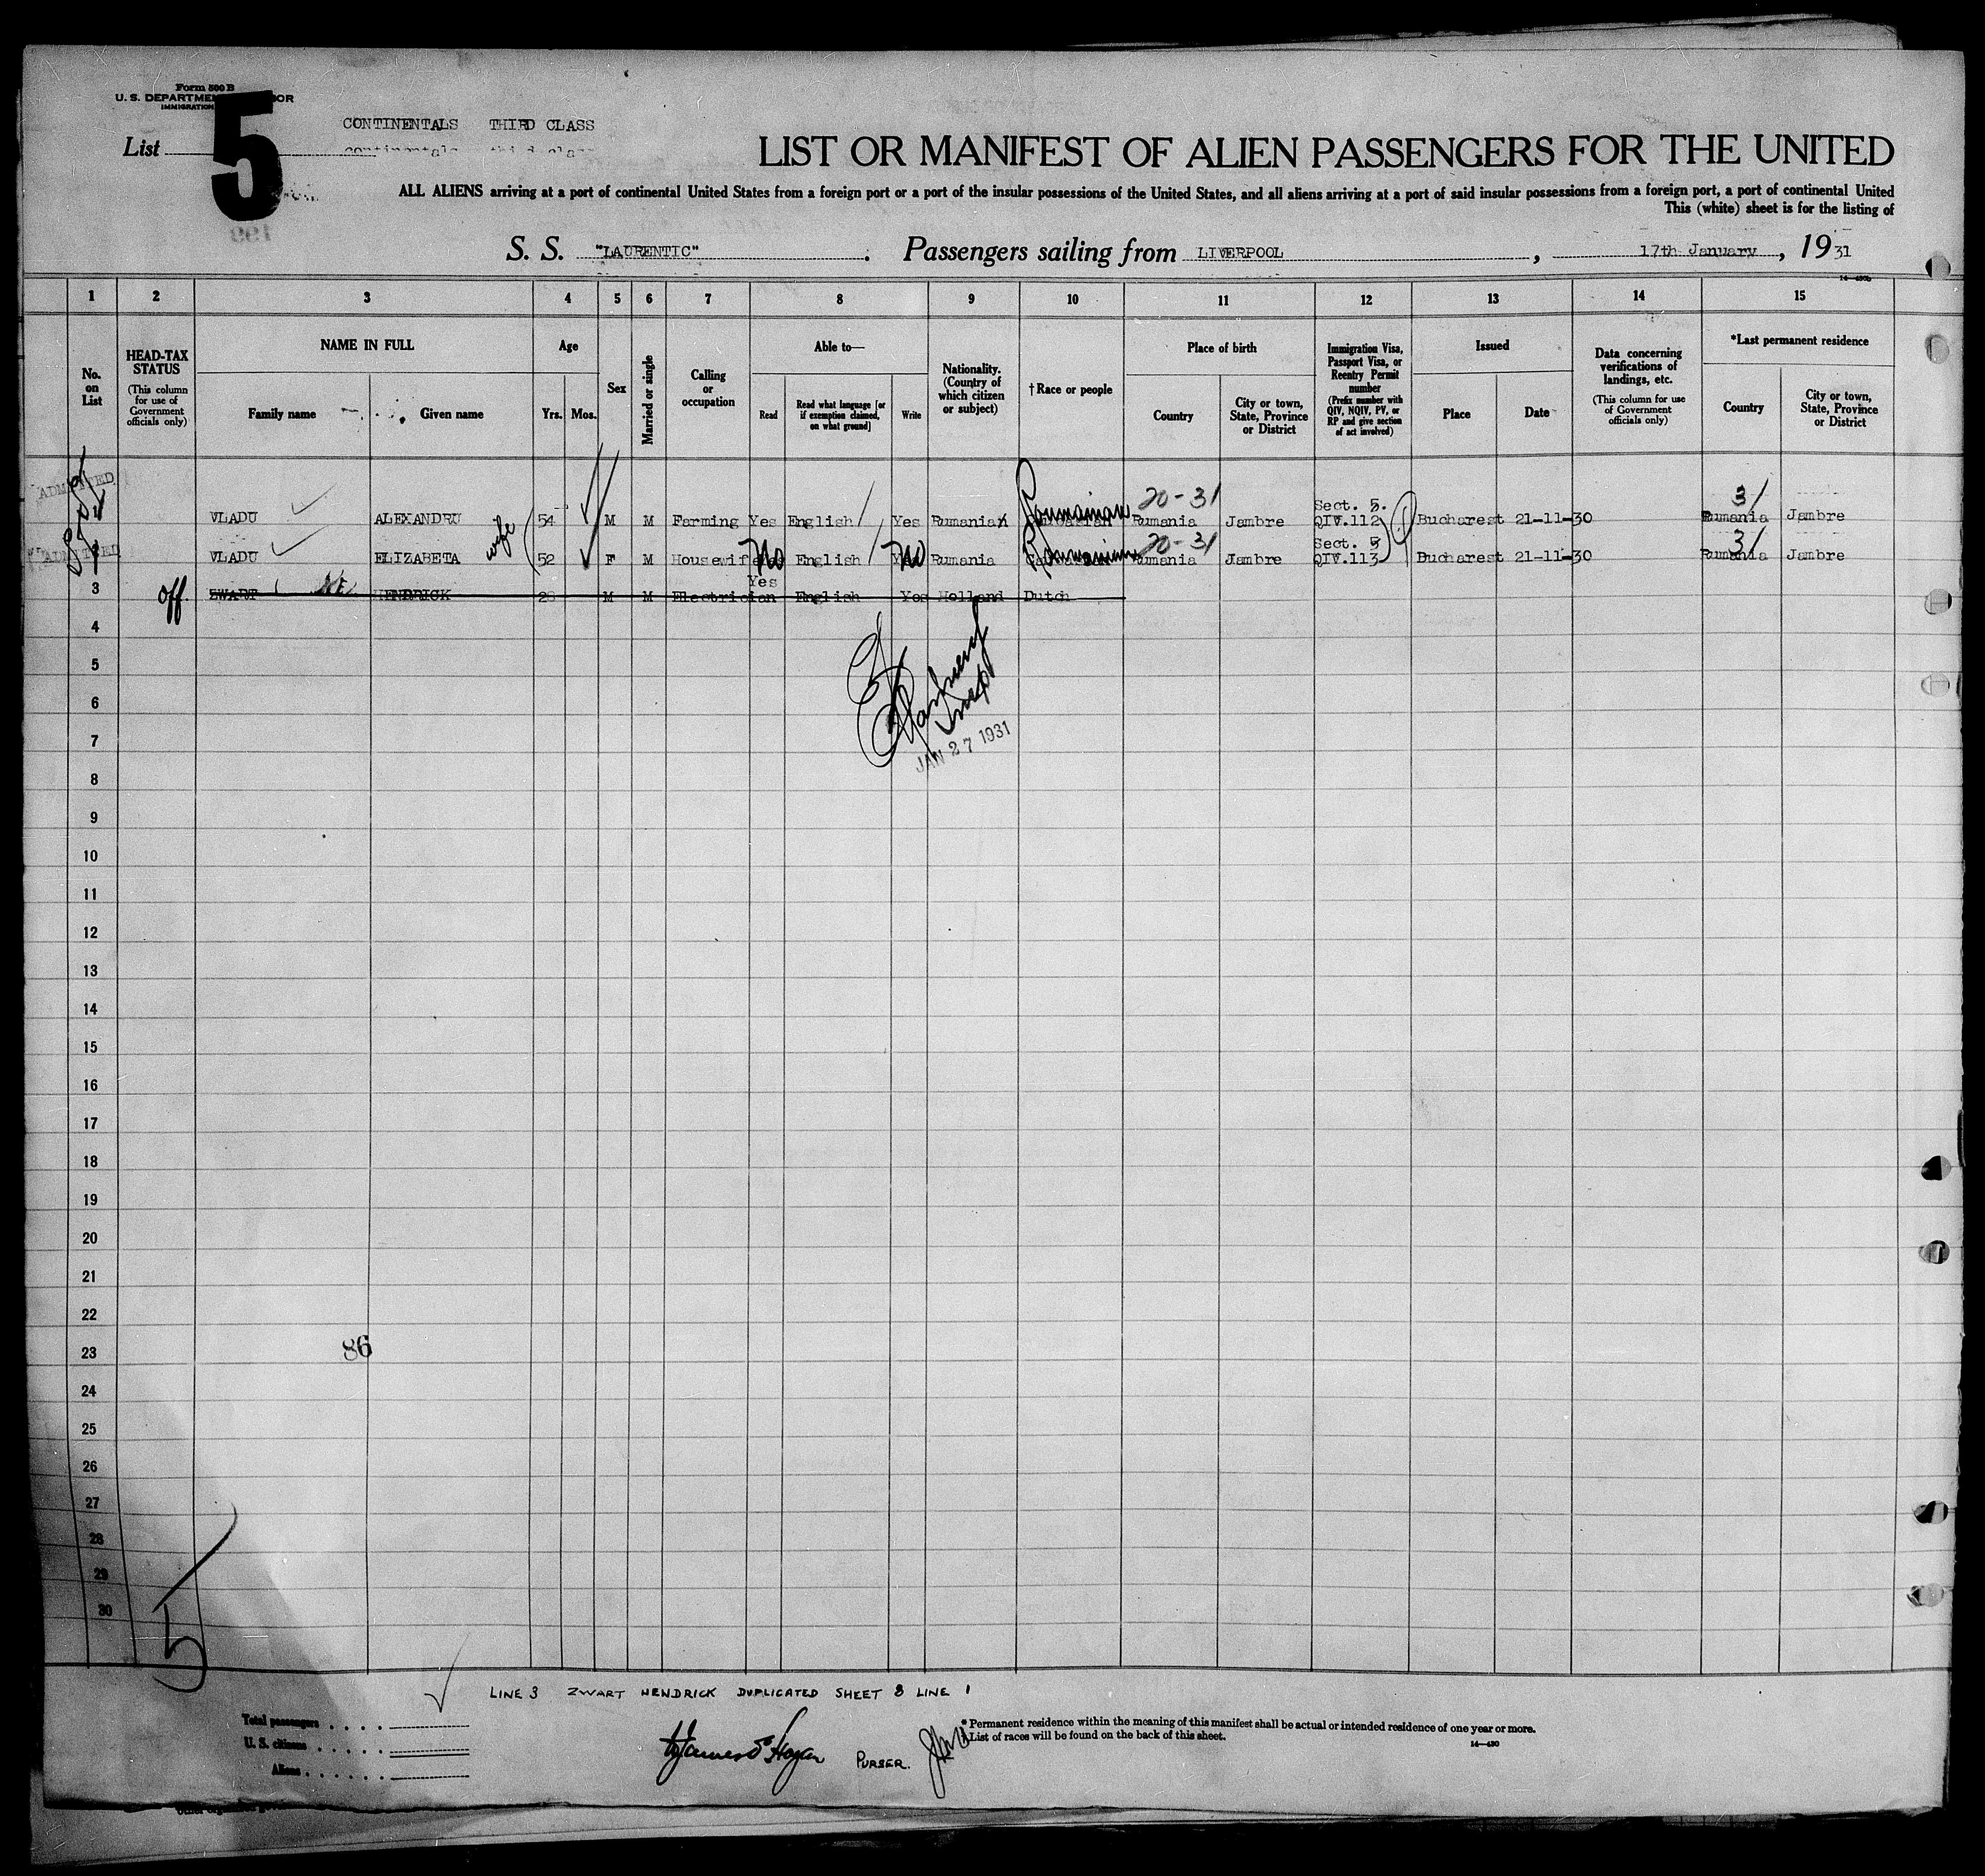 Form 500 B
U. S. DEPARTMENT OR
IMMIGRATION
List 5
CONTINENTALS THIRD CLASS
continentals third class
LIST OR MANIFEST OF ALIEN PASSENGERS FOR THE UNITED
ALL ALIENS arriving at a port of continental United States from a foreign port or a port of the insular possessions of the United States, and all aliens arriving at a port of said insular possessions from a foreign port, a port of continental United
This (white) sheet is for the listing of
199
S. S. "LAURENTIC" Passengers sailing from LIVERPOOL, 17th January, 1931
1 2 3 4 5 6 7 8 9 10 11 12 13 14 15
No. on List
HEAD-TAX STATUS
(This column for use of Government officials only)
NAME IN FULL
Family name Given name
Age
Yrs. Mos.
Sex
Married or single
Calling or occupation
Able to—
Read
Read what language [or if exemption claimed, on what ground]
Write
Nationality. (Country of which citizen or subject)
† Race or people
Place of birth
Country
City or town, State, Province or District
Immigration Visa, Passport Visa, or Reentry Permit number
(Prefix number with QIV, NQIV, PV, or RP and give section of act involved)
Issued
Place Date
Data concerning verifications of landings, etc.
(This column for use of Government officials only)
*Last permanent residence
Country
City or town, State, Province or District
ADMITTED
Roumanian 20-31 Sect. 5. 31
VLADU ALEXANDRU 54 M M Farming Yes English Yes Rumanian Rumania Jambre QIV.112 Bucharest 21-11-30 Rumania Jambre
ADMITTED
wife No No Roumanian 20-31 Sect. 5 31
VLADU ELIZABETA 52 F M Housewife English Rumania Rumania Jambre QIV.113 Bucharest 21-11-30 Rumania Jambre
Yes
3 off ZWART HENDRICK 28 M M Electrician English Yes Holland Dutch
4
5
6
7
Insp
JAN 27 1931
8
9
10
11
12
13
14
15
16
17
18
19
20
21
22
23 86
24
25
26
27
28
29
30
5
LINE 3 ZWART HENDRICK DUPLICATED SHEET 8 LINE 1
Total passengers
U. S. citizens
Aliens
PURSER.
* Permanent residence within the meaning of this manifest shall be actual or intended residence of one year or more.
† List of races will be found on the back of this sheet.
14—430